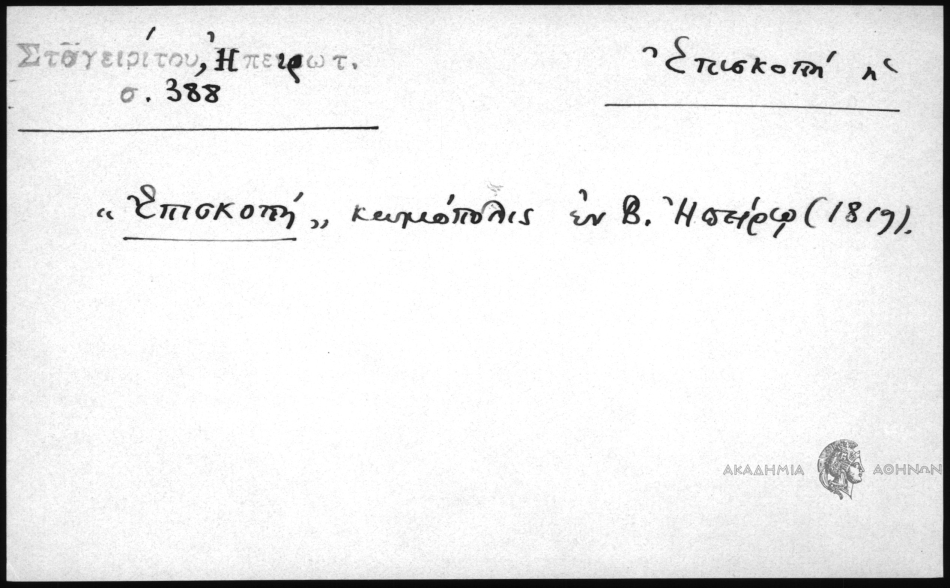 Σταγειρίτου, Ἠπειρωτ.
σ. 388
Ἐπισκοπή ἡ
"Ἐπισκοπή„ κωμόπολις ἐν Β. Ἠπείρῳ (1819).
ΑΚΑΔΗΜΙΑ ΑΘΗΝΩΝ